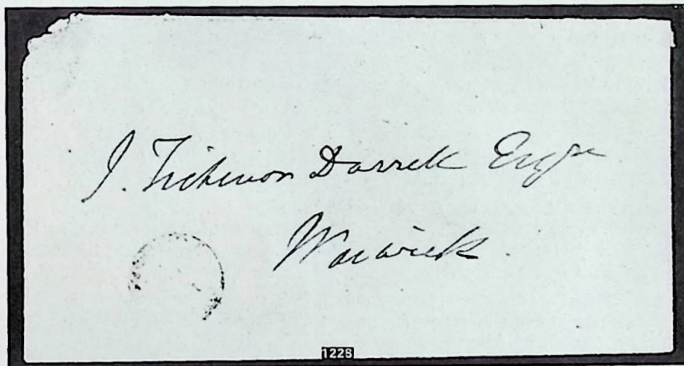 J. Tickenor Darrell Esqre
Warwick.
1228